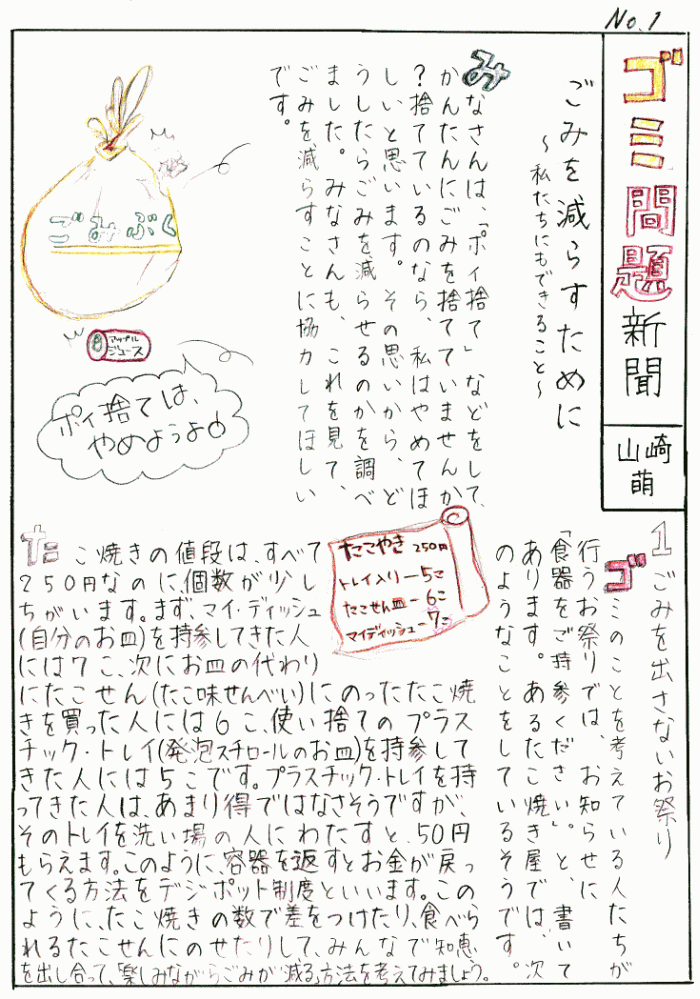 No.1
ゴミ問題新聞
山崎
萌
ごみを減らすために
～私たちにもできること～
みなさんは、「ポイ捨て」などをして、
かんたんにごみを捨てていませんか
？捨てているのなら、私はやめてほ
しいと思います。その思いから、ど
うしたらごみを減らせるのかを調べ
ました。みなさんも、これを見て、
ごみを減らすことに協力してほしい
です。
ごみぶくろ
アップル
ジュース
ポイ捨ては、
やめようよ
1ごみを出さないお祭り
ゴミのことを考えている人たちが
行うお祭りでは、お知らせに
「食器をご持参ください。」と、書いて
あります。あるたこ焼き屋では、次
のようなことをしているそうです。
たこやき 250円
トレイ入りー5こ
たこせん皿ー6こ
マイディッシュー7こ
たこ焼きの値段は、すべて
250円なのに、個数が少し
ちがいます。まず、マイ・ディッシュ
(自分のお皿)を持参してきた人
には7こ、次にお皿の代わり
にたこせん(たこ味せんべい)にのったたこ焼
きを買った人には6こ、使い捨てのプラス
チック・トレイ(発泡スチロールのお皿)を持参して
きた人には5こです。プラスチック・トレイを持
ってきた人は、あまり得ではなさそうですが、
そのトレイを洗い場の人にわたすと、50円
もらえます。このように、容器を返すとお金が戻っ
てくる方法をデジポット制度といいます。この
ように、たこ焼きの数で差をつけたり、食べら
れるたこせんにのせたりして、みんなで知恵
を出し合って、楽しみながらごみが減る方法を考えてみましょう。